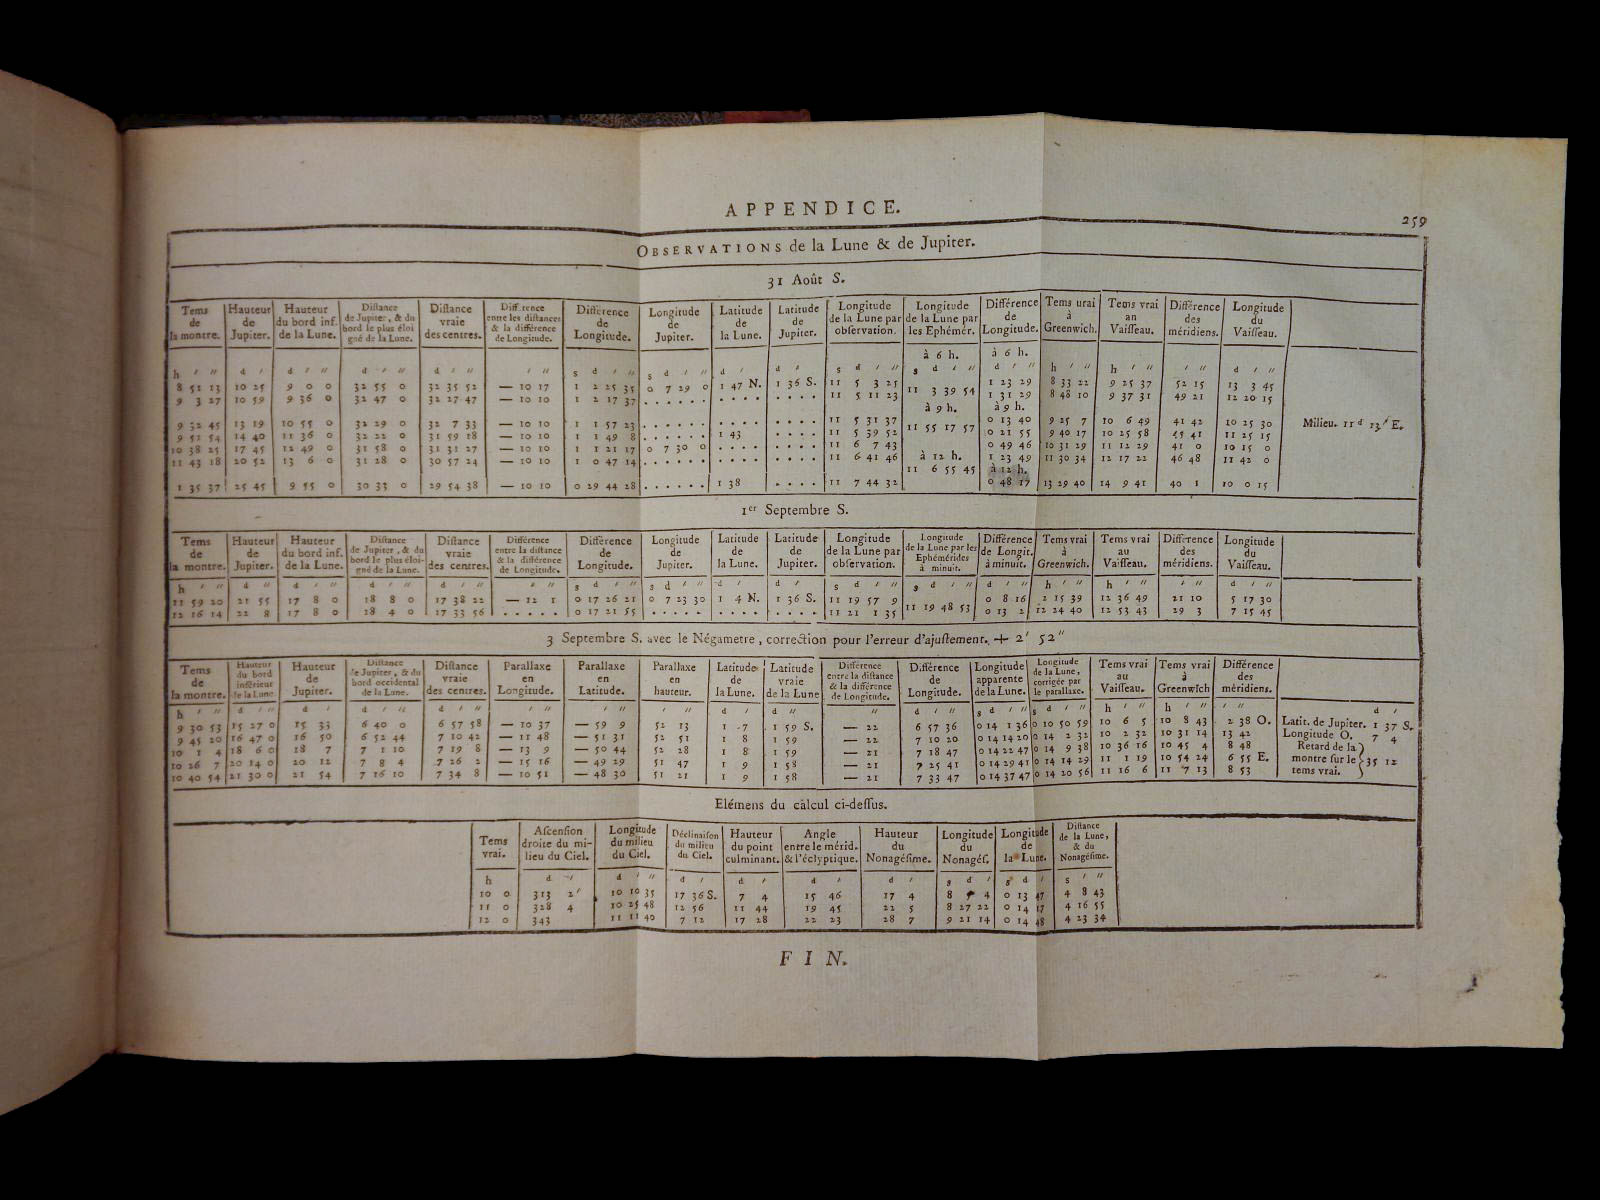 APPENDICE.
259
OBSERVATIONS de la Lune & de Jupiter.
31 Août S.
Tems de la montre. Hauteur de Jupiter. Hauteur du bord inf. de la Lune. Diſtance de Jupiter, & du bord le plus éloigné de la Lune. Diſtance vraie des centres. Différence entre les diſtances & la différence de Longitude. Différence de Longitude. Longitude de Jupiter. Latitude de la Lune. Latitude de Jupiter. Longitude de la Lune par obſervation. Longitude de la Lune par les Ephémér. Différence de Longitude. Tems urai à Greenwich. Tems vrai an Vaiſſeau. Différence des méridiens. Longitude du Vaiſſeau.
à 6 h. à 6 h.
h ′ ″ d ′ d ′ ″ d ′ ″ d ′ ″ ′ ″ s d ′ ″ s d ′ ″ d ′ d ′ s d ′ ″ s d ′ ″ d ′ ″ h ′ ″ h ′ ″ ′ ″ d ′ ″
8 51 13 10 25 9 0 0 32 55 0 32 35 52 — 10 17 1 2 25 35 0 7 29 0 1 47 N. 1 36 S. 11 5 3 25 11 3 39 54 1 23 29 8 33 22 9 25 37 52 15 13 3 45
9 3 27 10 59 9 36 0 32 47 0 32 27 47 — 10 10 1 2 17 37 . . . . . . . . . . . . . . 11 5 11 23 1 31 29 8 48 10 9 37 31 49 21 12 20 15
à 9 h. à 9 h.
9 32 45 13 19 10 55 0 32 29 0 32 7 33 — 10 10 1 1 57 23 . . . . . . . . . . . . . . 11 5 31 37 11 55 17 57 0 13 40 9 25 7 10 6 49 41 42 10 25 30 Milieu. 11d 13′ E.
9 52 54 14 40 11 36 0 32 22 0 31 59 18 — 10 10 1 1 49 8 . . . . . . 1 43 . . . . 11 5 39 52 0 21 55 9 40 17 10 25 58 45 41 11 25 15
10 38 25 17 45 12 49 0 31 58 0 31 31 27 — 10 10 1 1 21 17 0 7 30 0 . . . . . . . . 11 6 7 43 0 49 46 10 31 29 11 12 29 41 0 10 15 0
11 43 18 20 52 13 6 0 31 28 0 30 57 24 — 10 10 1 0 47 14 . . . . . . . . . . . . . . 11 6 41 46 à 12 h. 1 23 49 11 30 34 12 17 22 46 48 11 42 0
11 6 55 45 à 12 h.
1 35 37 25 45 9 55 0 30 33 0 29 54 38 — 10 10 0 29 44 28 . . . . . . 1 38 . . . . 11 7 44 32 0 48 17 13 29 40 14 9 41 40 1 10 0 15
1er Septembre S.
Tems de la montre. Hauteur de Jupiter. Hauteur du bord inf. de la Lune. Diſtance de Jupiter, & du bord le plus éloigné de la Lune. Diſtance vraie des centres. Différence entre la diſtance & la différence de Longitude. Différence de Longitude. Longitude de Jupiter. Latitude de la Lune. Latitude de Jupiter. Longitude de la Lune par obſervation. Longitude de la Lune par les Ephémérides à minuit. Différence de Longit. à minuit. Tems vrai à Greenwich. Tems vrai au Vaiſſeau. Différence des méridiens. Longitude du Vaiſſeau.
h ′ ″ d ″ d ′ ″ d ′ ″ d ′ ″ ′ ″ s d ′ ″ s d ′ ″ d ′ d ′ s d ′ ″ s d ′ ″ d ′ ″ h ′ ″ h ′ ″ ′ ″ d ′ ″
11 59 20 21 55 17 8 0 18 8 0 17 38 22 — 12 1 0 17 26 21 0 7 23 30 1 4 N. 1 36 S. 11 19 57 9 11 19 48 53 0 8 16 2 15 39 12 36 49 21 10 5 17 30
12 16 14 22 8 17 8 0 18 4 0 17 33 56 . . . . . 0 17 21 55 . . . . . . . . . . . . . 11 21 1 35 0 13 2 12 24 40 12 53 43 29 3 7 15 45
3 Septembre S. avec le Négametre, correction pour l'erreur d'ajuſtement. + 2′ 52″
Tems de la montre. Hauteur du bord inférieur de la Lune. Hauteur de Jupiter. Diſtance de Jupiter, & du bord occidental de la Lune. Diſtance vraie des centres. Parallaxe en Longitude. Parallaxe en Latitude. Parallaxe en hauteur. Latitude de la Lune. Latitude vraie de la Lune Différence entre la diſtance & la différence de Longitude. Différence de Longitude. Longitude apparente de la Lune. Longitude de la Lune, corrigée par le parallaxe. Tems vrai au Vaiſſeau. Tems vrai à Greenwich Différence des méridiens.
h ′ ″ d ′ ″ d ′ d ′ ″ d ′ ″ ′ ″ ′ ″ ′ ″ d ′ d ″ ″ d ′ ″ s d ′ ″ s d ′ ″ h ′ ″ h ′ ″ ′ ″ d ′
9 30 53 15 27 0 15 33 6 40 0 6 57 58 — 10 37 — 59 9 52 13 1 7 1 59 S. — 22 6 57 36 0 14 1 36 0 10 50 59 10 6 5 10 8 43 2 38 O. Latit. de Jupiter. 1 37 S.
9 45 20 16 47 0 16 50 6 52 44 7 10 42 — 11 48 — 51 31 52 51 1 8 1 59 — 22 7 10 20 0 14 14 20 0 14 2 32 10 2 32 10 31 14 13 42 Longitude O. 7 4
10 1 4 18 6 0 18 7 7 1 10 7 19 8 — 13 9 — 50 44 52 28 1 8 1 59 — 21 7 18 47 0 14 22 47 0 14 9 38 10 36 16 10 45 4 8 48 Retard de la
10 26 7 20 14 0 20 12 7 8 4 7 26 2 — 15 16 — 49 29 51 47 1 9 1 58 — 21 7 25 41 0 14 29 41 0 14 14 29 11 1 19 10 54 24 6 55 E. montre ſur le 35 12
10 40 54 21 30 0 21 54 7 16 10 7 34 8 — 10 51 — 48 30 51 21 1 9 1 58 — 21 7 33 47 0 14 37 47 0 14 20 56 11 16 6 11 7 13 8 53 tems vrai.
Elémens du calcul ci-deſſus.
Tems vrai. Aſcenſion droite du milieu du Ciel. Longitude du milieu du Ciel. Déclinaiſon du milieu du Ciel. Hauteur du point culminant. Angle entre le mérid. & l'éclyptique. Hauteur du Nonagéſime. Longitude du Nonagéſ. Longitude de la Lune. Diſtance de la Lune, & du Nonagéſime.
h d ′ d ′ ″ d ′ d ′ d ′ d ′ s d ′ s d ′ s ′ ″
10 0 313 2′ 10 10 35 17 36 S. 7 4 15 46 17 4 8 4 0 13 47 4 8 43
11 0 328 4 10 25 48 12 56 11 44 19 45 22 5 8 27 22 0 14 17 4 16 55
12 0 343 11 11 40 7 12 17 28 22 23 28 7 9 21 14 0 14 48 4 23 34
FIN.